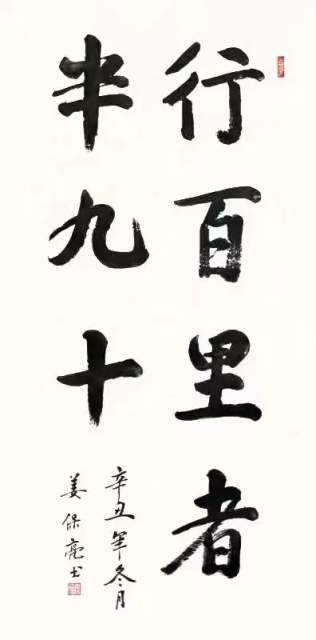 行百里者
半九十
辛丑年冬月
姜保亮书